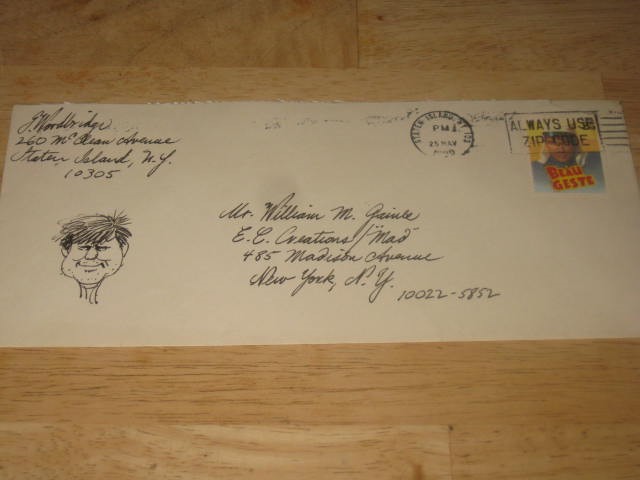 G. Woodbridge
260 McClean Avenue
Staten Island, N.Y.
10305
STATEN ISLAND, NY 103
PM
25 MAY
1990
ALWAYS USE
ZIP CODE
BEAU
GESTE
Mr. William M. Gaines
E.C. Creations/"Mad"
485 Madison Avenue
New York, N.Y.
10022-5852